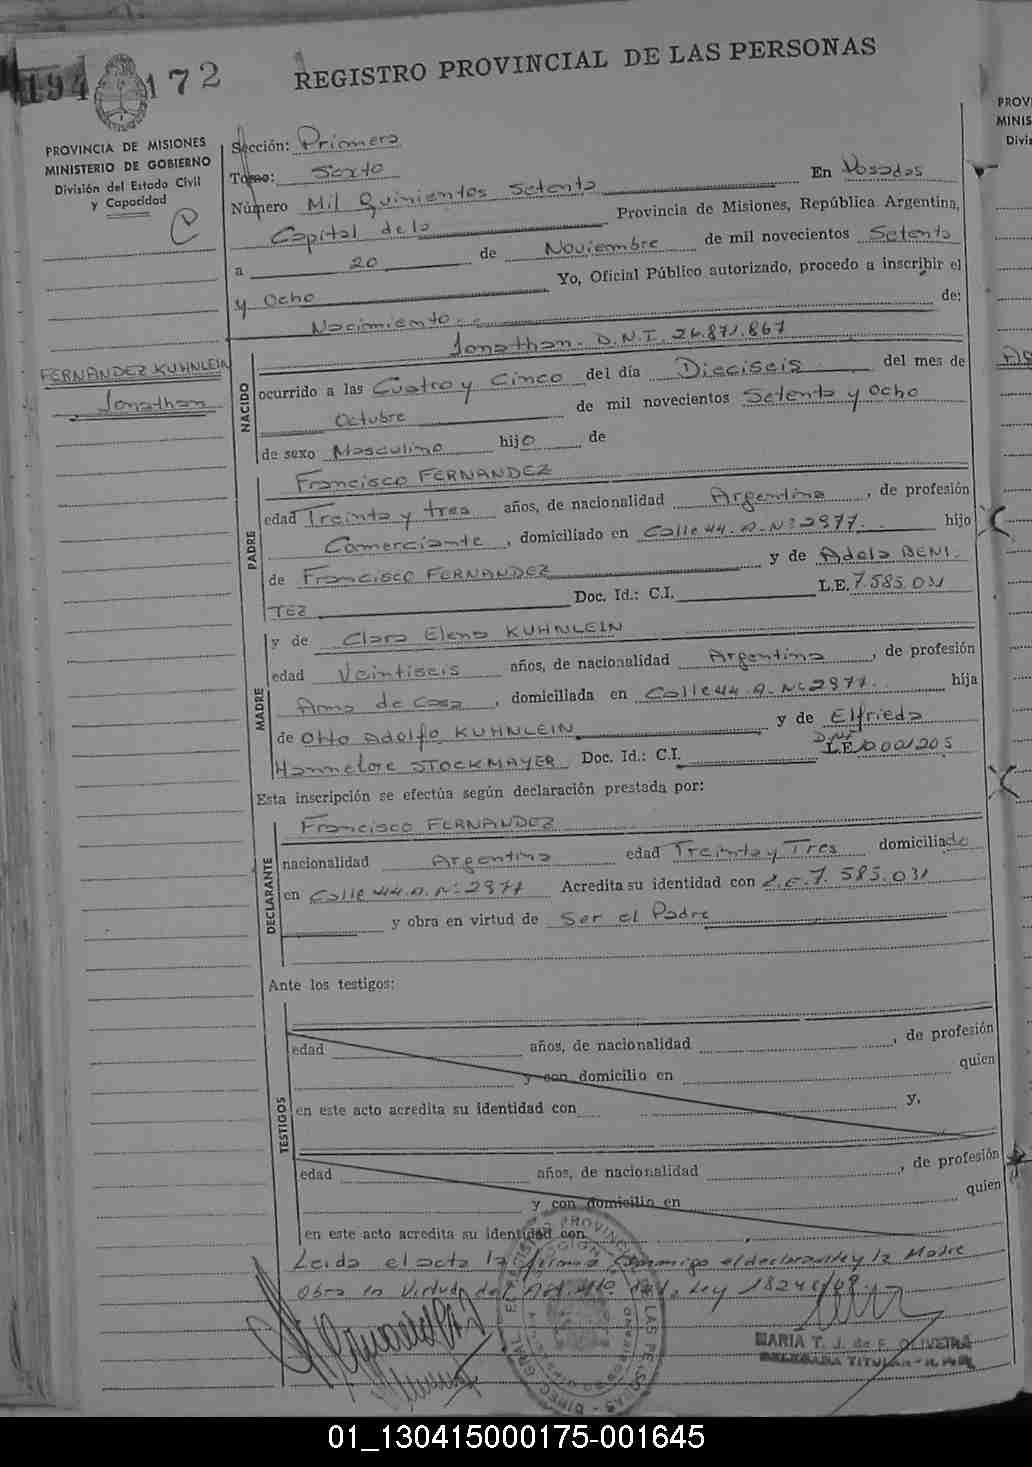 194 172
REGISTRO PROVINCIAL DE LAS PERSONAS
PROVINCIA DE MISIONES
MINISTERIO DE GOBIERNO
División del Estado Civil
y Capacidad
C
FERNANDEZ KUHNLEIN
Jonathan
Sección: Primera
Tomo: Sexto
Número Mil Quinientos Setenta En Posadas
Capital de la Provincia de Misiones, República Argentina,
a 20 de Noviembre de mil novecientos Setenta
y Ocho Yo, Oficial Público autorizado, procedo a inscribir el
Nacimiento de:
NACIDO
Jonathan. D.N.I. 26.871.867
ocurrido a las Cuatro y Cinco del día Dieciseis del mes de
Octubre de mil novecientos Setenta y Ocho
de sexo Masculino hijo de
PADRE
Francisco FERNANDEZ
edad Treinta y tres años, de nacionalidad Argentina, de profesión
Comerciante, domiciliado en Calle 44. A. Nº 2977. hijo
de Francisco FERNANDEZ y de Adela BENI-
TEZ Doc. Id.: C.I. L.E. 7.585.031
MADRE
y de Clara Elena KUHNLEIN
edad Veintiseis años, de nacionalidad Argentina, de profesión
Ama de Casa, domiciliada en Calle 44. A. Nº 2977. hija
de Otto Adolfo KUHNLEIN y de Elfrieda
Hannelore STOCKMAYER Doc. Id.: C.I. L.E. DNI 10.001.205
Esta inscripción se efectúa según declaración prestada por:
DECLARANTE
Francisco FERNANDEZ
nacionalidad Argentina edad Treinta y Tres domiciliado
en Calle 44. A. Nº 2977 Acredita su identidad con L.E. 7.585.031
y obra en virtud de Ser el Padre
Ante los testigos:
TESTIGOS
edad años, de nacionalidad , de profesión
y con domicilio en quien
en este acto acredita su identidad con y,
edad años, de nacionalidad , de profesión
y con domicilio en quien
en este acto acredita su identidad con
Leida el acta la firma Conmigo el declarante y la Madre
Obra en Virtud del Ley 18248/69
MARIA T. J. de F. OLIVEIRA
DELEGADA TITULAR
PROV
MINIS
Divis
01_130415000175-001645